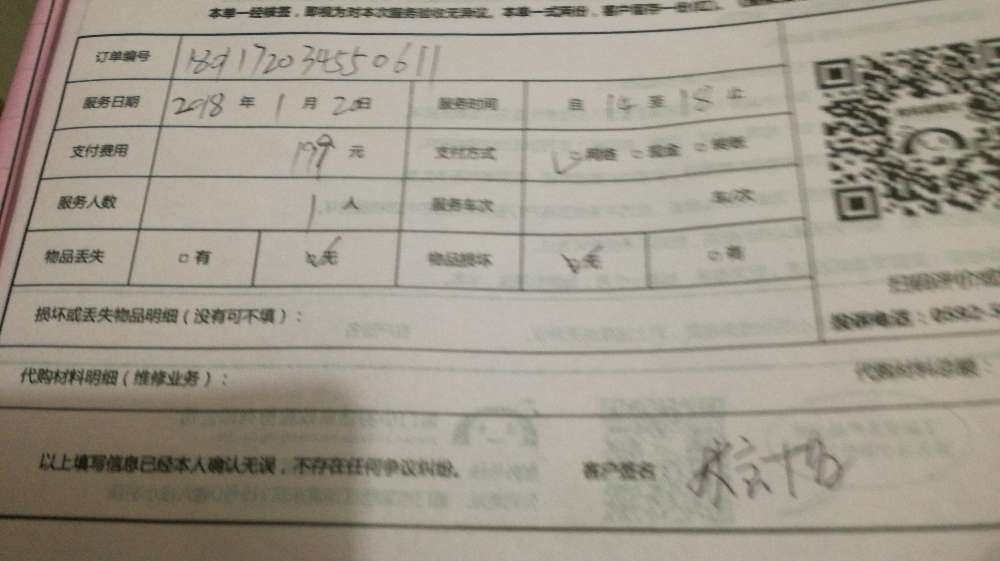 本单一经核签，即视为对本次服务验收无异议。本单一式两份，客户留存一份
订单编号 1891172034550611
服务日期 2018 年 1 月 20 日 服务时间 自 14 至 18 止
支付费用 199 元 支付方式 □网络 □现金 □转账
服务人数 1 人 服务车次 车/次
物品丢失 □有 □无 物品损坏 □无 □有
损坏或丢失物品明细（没有可不填）：
代购材料明细（维修业务）： 代购材料总额：
以上填写信息已经本人确认无误，不存在任何争议纠纷。 客户签名：